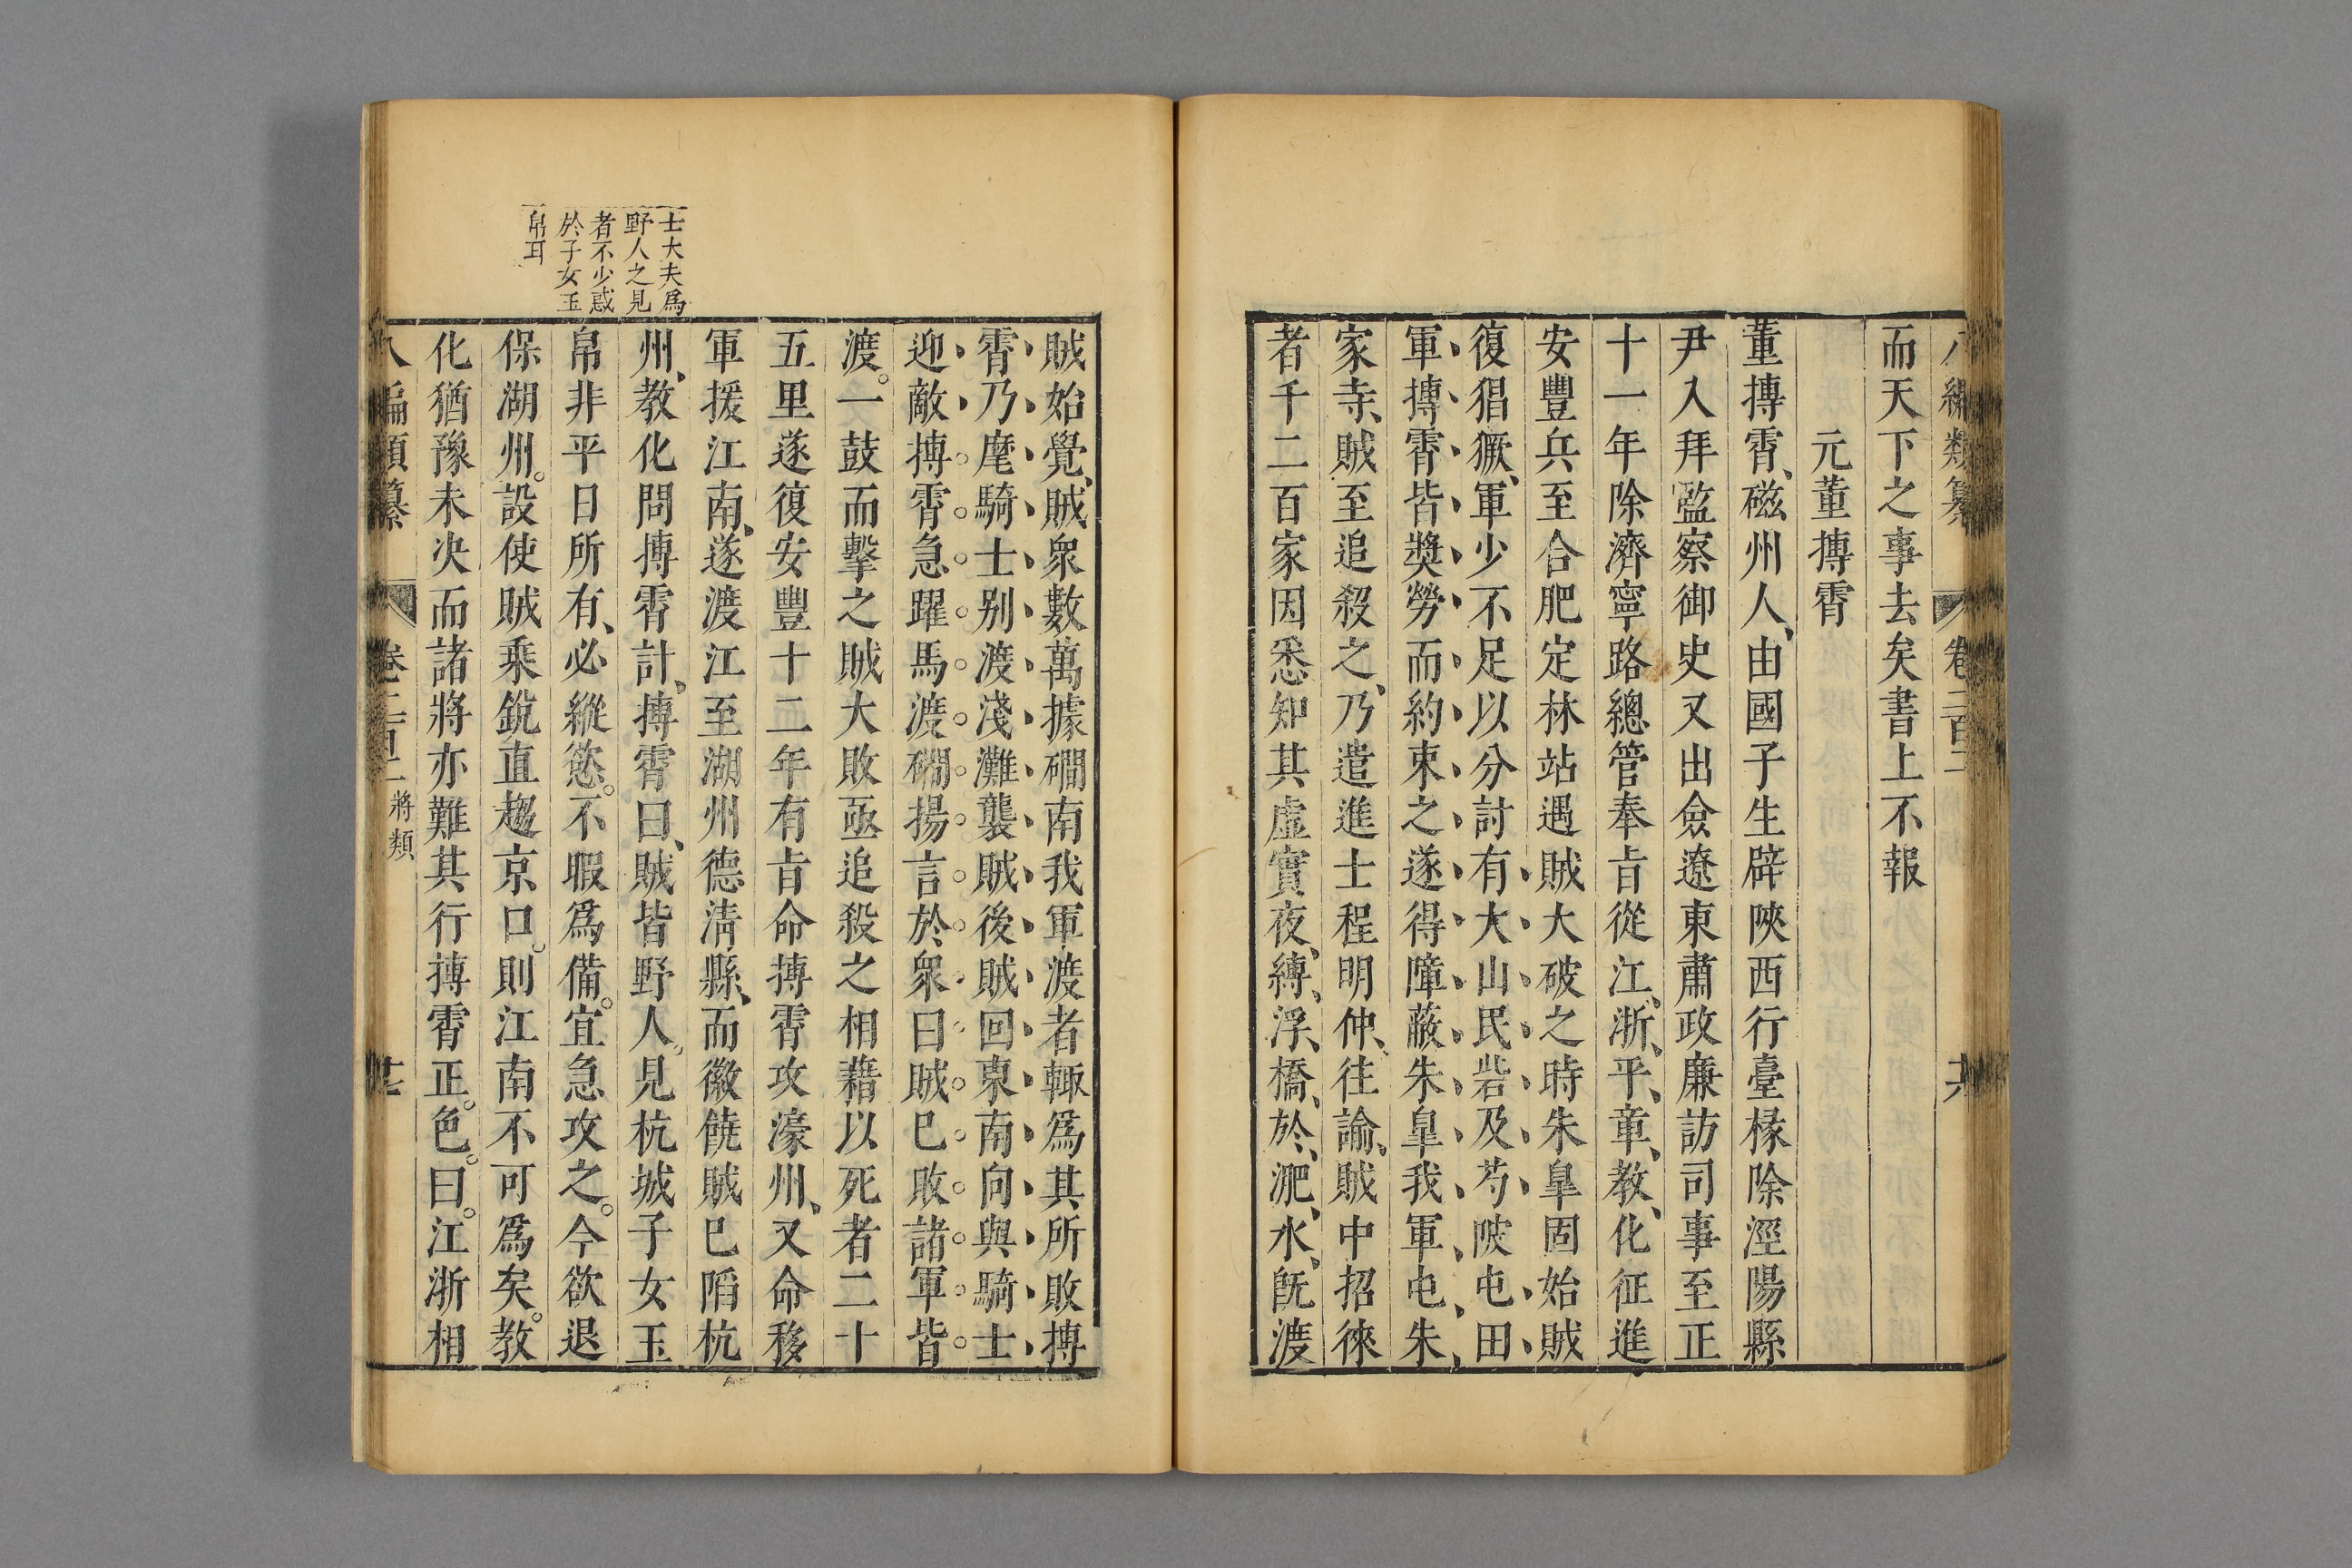 八編類纂 卷二百二 共
而天下之事去矣書上不報
元董摶霄
董摶霄、磁州人、由國子生辟陝西行臺椽除涇陽縣
尹入拜監察御史又出僉遼東肅政廉訪司事至正
十一年除濟寧路總管奉㫖從江、浙、平、章、教、化征進
安豐兵至合肥定林站遇賊大破之時朱臯固始賊
復猖獗、軍少不足以分討有大山民砦及芍陂屯田
軍摶霄皆奬勞而約束之遂得障蔽朱臯我軍屯朱
家寺、賊至追殺之、乃遣進士程明仲、往諭、賊中招徠
者千二百家因悉知其虛實夜、縛、浮、橋、於、淝、水、旣渡
賊始覺、賊衆數萬據磵南我軍渡者輙爲其所敗摶
霄乃麾騎士别渡淺灘襲賊後賊回東南向與騎士
迎敵摶霄急躍馬渡磵揚言於衆曰賊已敗諸軍皆
渡。一鼓而擊之賊大敗亟追殺之相藉以死者二十
五里遂復安豐十二年有㫖命摶霄攻濠州、又命移
軍援江南、遂渡江至湖州德淸縣、而徽饒賊已陷杭
州、教化問摶霄計、摶霄曰、賊皆野人、見杭城子女玉
帛非平日所有、必縱慾。不暇爲備。宜急攻之。今欲退
保湖州。設使賊乘銳直趨京口。則江南不可爲矣。教
化猶豫未决而諸將亦難其行摶霄正。色。曰。江浙相
士大夫爲
野人之見
者不少惑
於子女玉
帛耳
八編類纂 卷二百二 將類